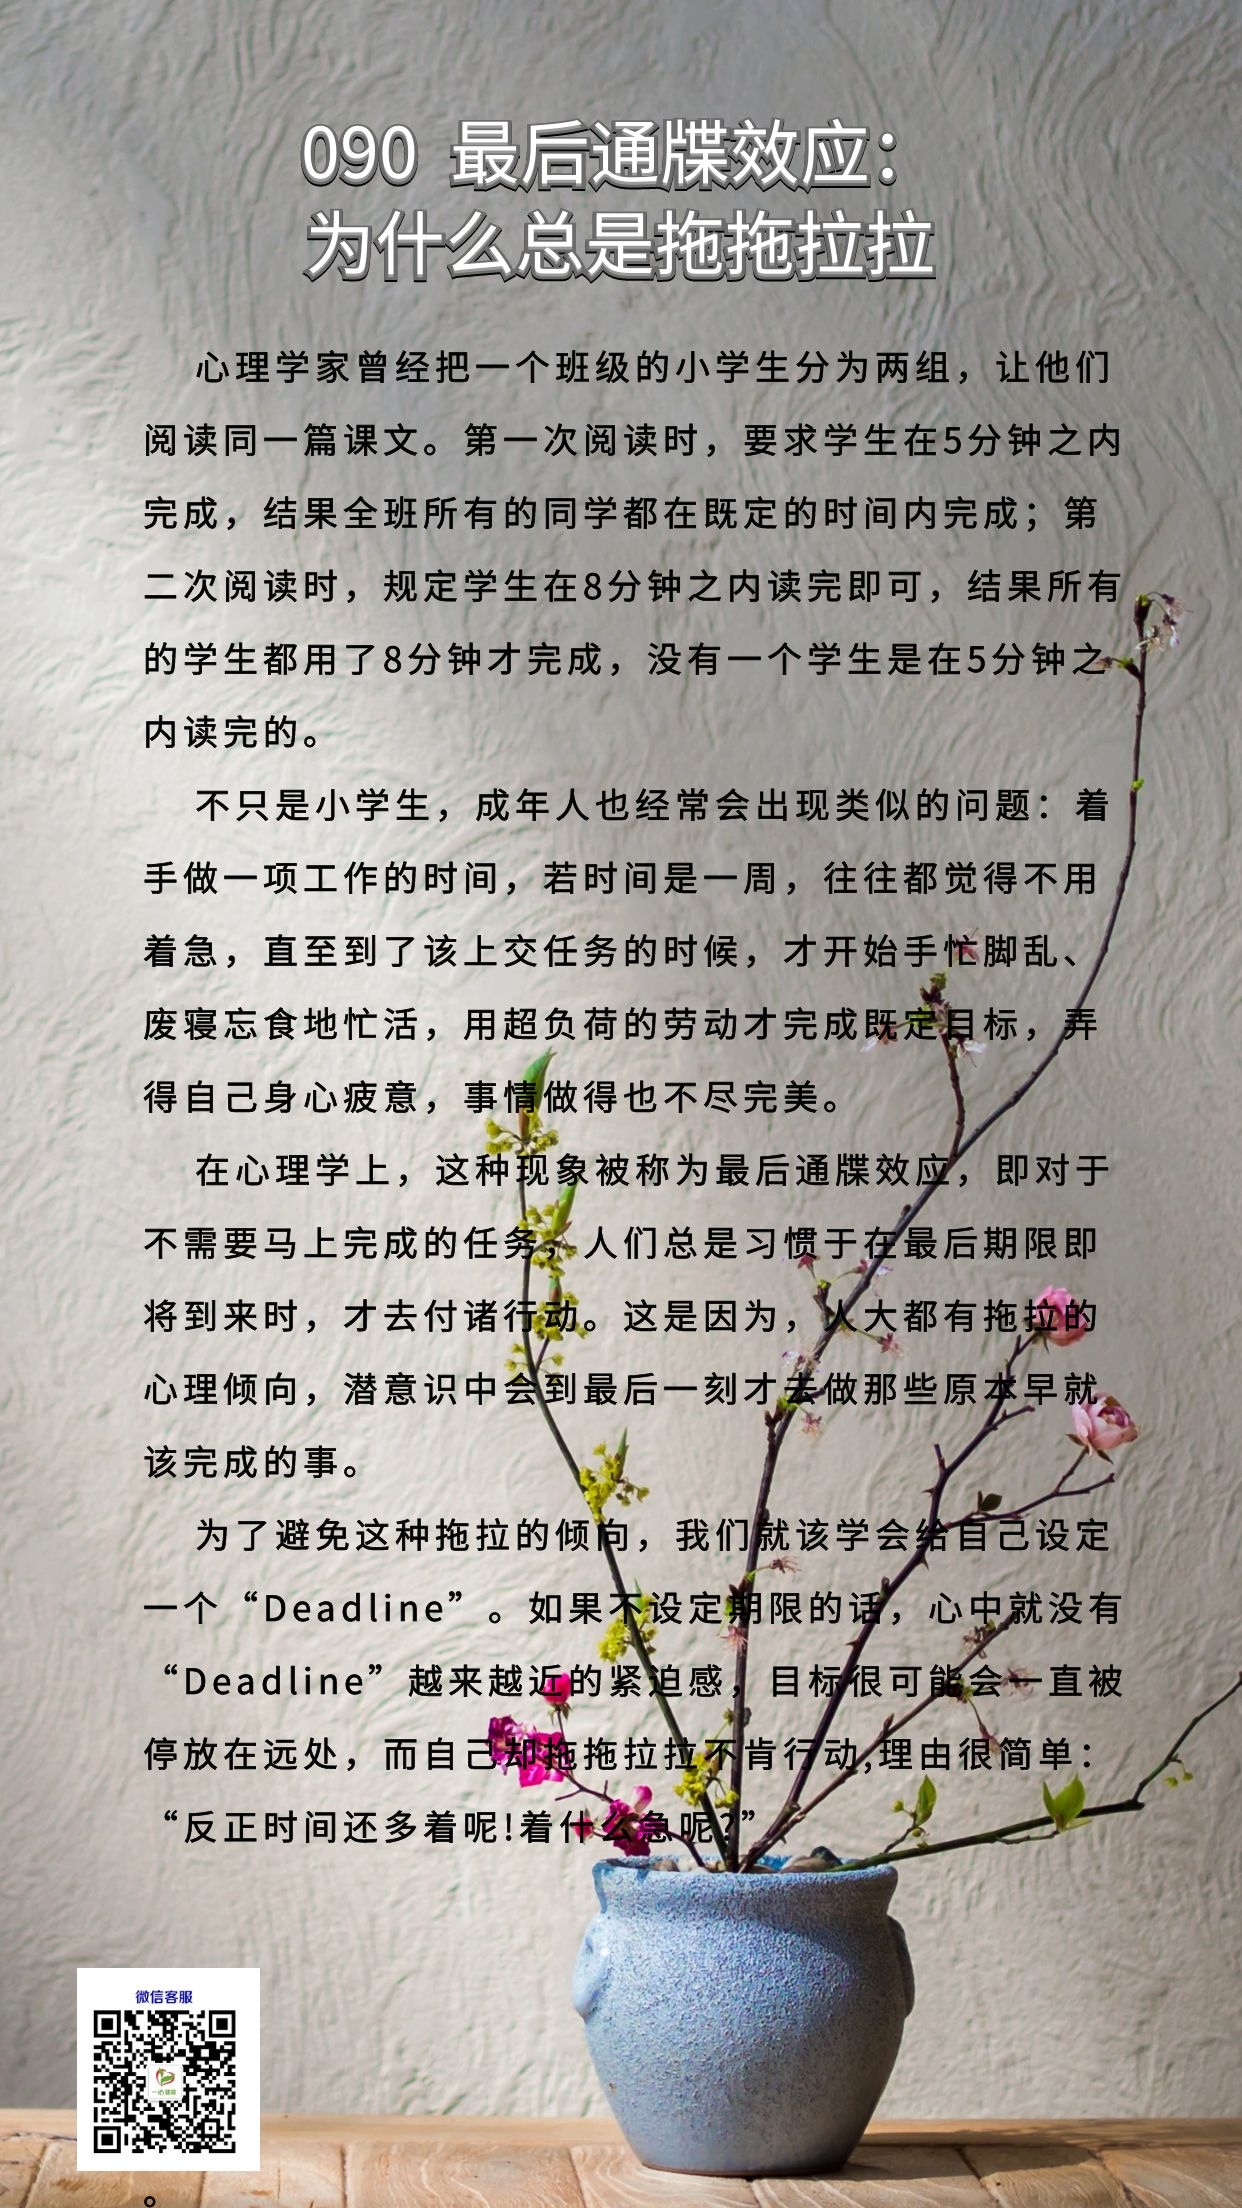 090 最后通牒效应：
为什么总是拖拖拉拉
心理学家曾经把一个班级的小学生分为两组，让他们
阅读同一篇课文。第一次阅读时，要求学生在5分钟之内
完成，结果全班所有的同学都在既定的时间内完成；第
二次阅读时，规定学生在8分钟之内读完即可，结果所有
的学生都用了8分钟才完成，没有一个学生是在5分钟之
内读完的。
不只是小学生，成年人也经常会出现类似的问题：着
手做一项工作的时间，若时间是一周，往往都觉得不用
着急，直至到了该上交任务的时候，才开始手忙脚乱、
废寝忘食地忙活，用超负荷的劳动才完成既定目标，弄
得自己身心疲意，事情做得也不尽完美。
在心理学上，这种现象被称为最后通牒效应，即对于
不需要马上完成的任务，人们总是习惯于在最后期限即
将到来时，才去付诸行动。这是因为，人大都有拖拉的
心理倾向，潜意识中会到最后一刻才去做那些原本早就
该完成的事。
为了避免这种拖拉的倾向，我们就该学会给自己设定
一个“Deadline”。如果不设定期限的话，心中就没有
“Deadline”越来越近的紧迫感，目标很可能会一直被
停放在远处，而自己却拖拖拉拉不肯行动,理由很简单：
“反正时间还多着呢!着什么急呢?”
微信客服
一心健康
。